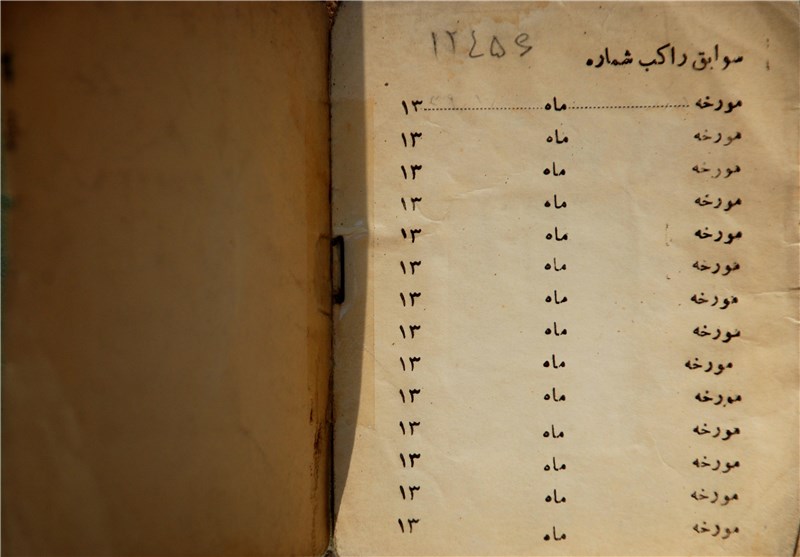 سوابق راکب شماره ۱۲٤۵۶
مورخه ماه ۱۳
مورخه ماه ۱۳
مورخه ماه ۱۳
مورخه ماه ۱۳
مورخه ماه ۱۳
مورخه ماه ۱۳
مورخه ماه ۱۳
مورخه ماه ۱۳
مورخه ماه ۱۳
مورخه ماه ۱۳
مورخه ماه ۱۳
مورخه ماه ۱۳
مورخه ماه ۱۳
مورخه ماه ۱۳